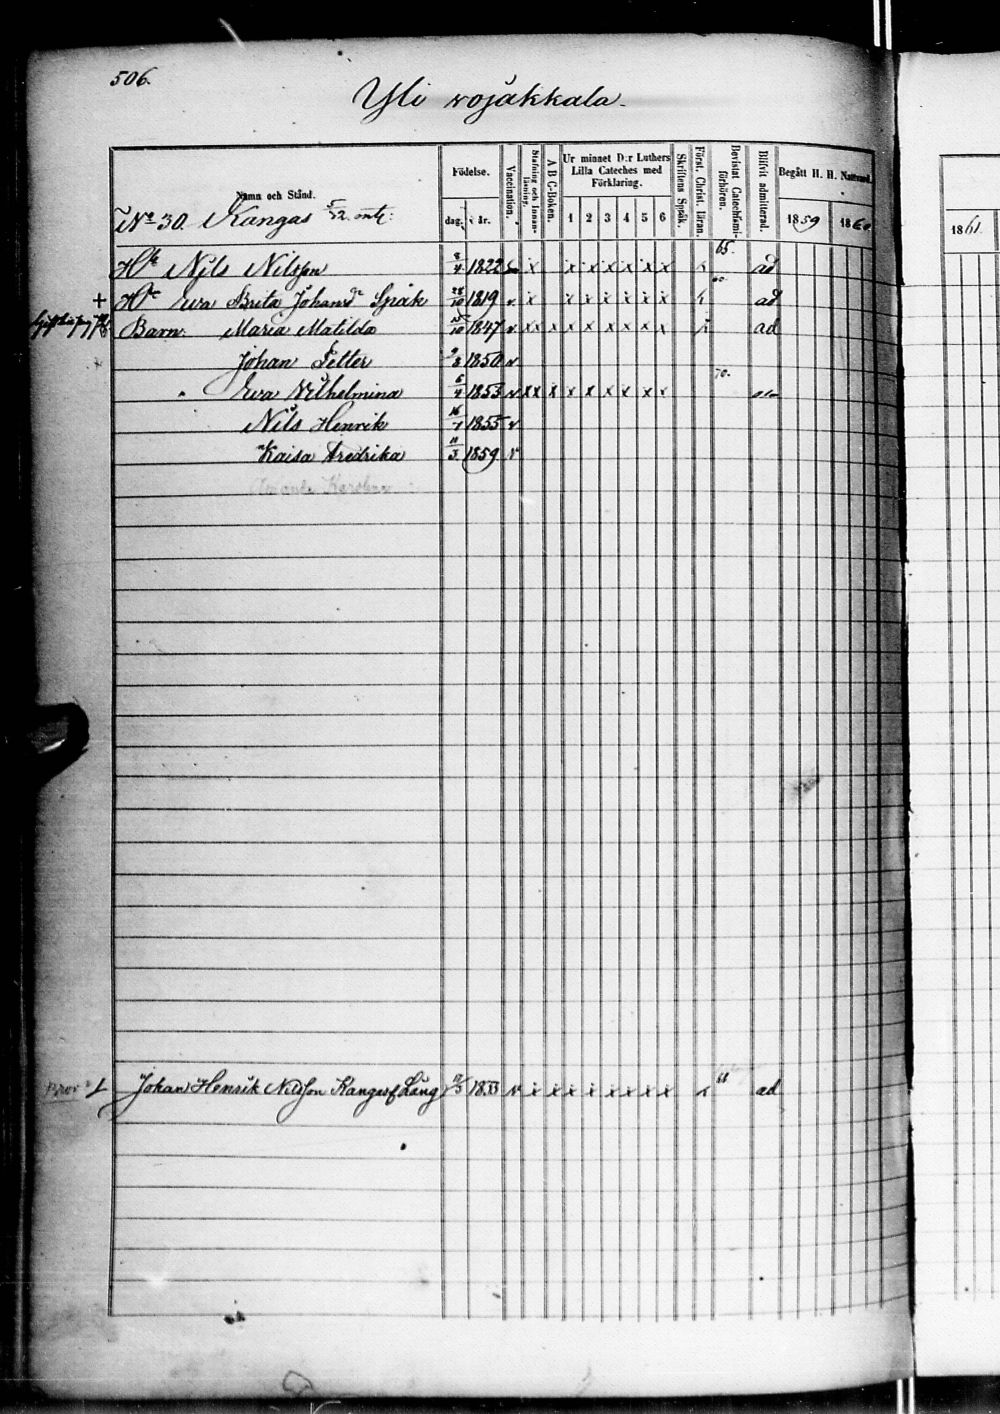 506.
Yli vojakkala.
Namn och Stånd.
Födelse.
dag. år.
Vaccination.
Stafning och Innanläsning.
A B C-Boken.
Ur minnet D:r Luthers Lilla Cateches med Förklaring.
1 2 3 4 5 6
Skriftens Språk.
Först. Christ. läran.
Bevistat Catechismiförhören.
Blifvit admitterad.
Begått H. H. Nattvard.
1859 1860
1861.
No 30. Kangas 5/12 mtl:
Hde Nils Nilsson 3/4 1822 x x x x x x x x 65. ad
+ Hu Eva Brita Johansdr Spiäk 28/10 1819 v. x x x x x x x x ad
Barn: Maria Matilda 15/10 1847 v x x x x x x x x x x ad
Johan Petter 9/8 1850 v
Eva Wilhelmina 6/4 1853 v x x x x x x x x x 70.
Nils Henrik 16/1 1855 v
Kaisa Fredrika 11/3 1859 v
Amanda Karolina
Johan Henrik Nilsson Kangas f Lång 1833 v x x x x x x x x x 68 ad